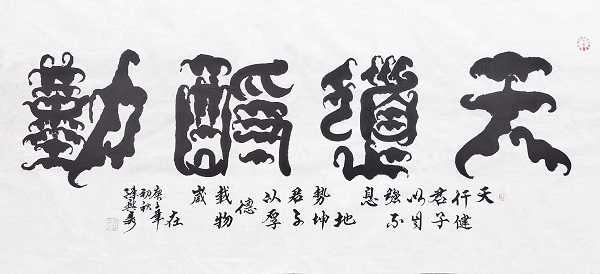 天道酬勤
天
行健
君子
以自
强不
息
地
势坤
君子
以厚
德
载物
岁
在
庚子年
初秋